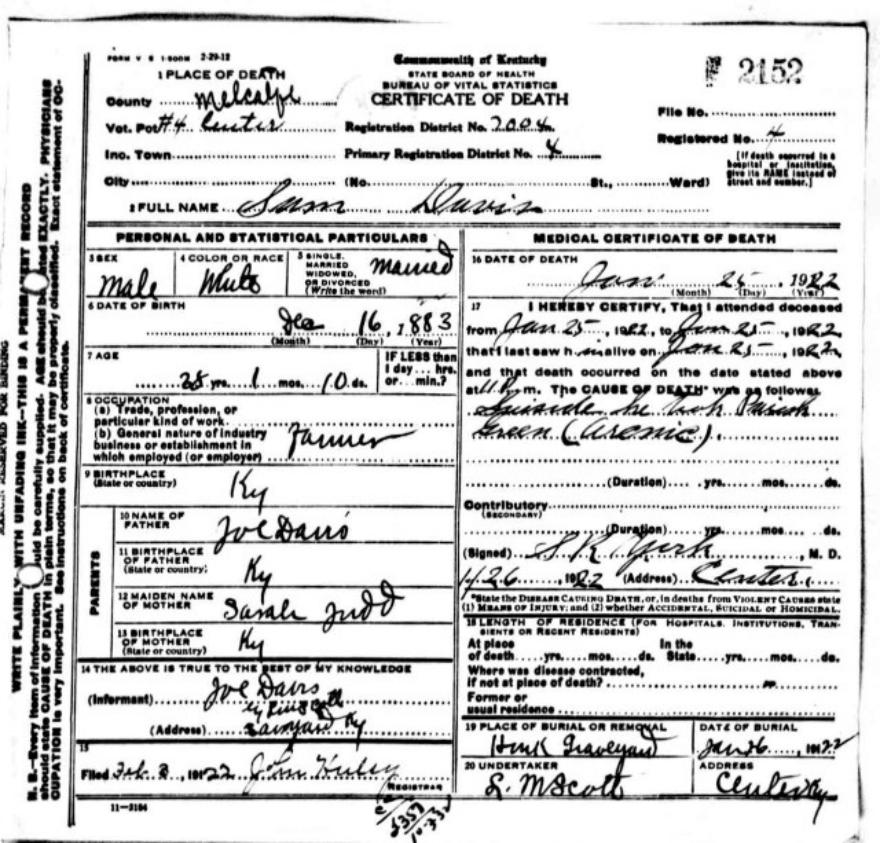 FORM V S 1-500M 2-29-12
Commonwealth of Kentucky
STATE BOARD OF HEALTH
BUREAU OF VITAL STATISTICS
CERTIFICATE OF DEATH
2152
1 PLACE OF DEATH
County Metcalfe
Vot. Pct #4 Center
Inc. Town
City
Registration District No. 7004
Primary Registration District No. 4
(No. St., Ward)
File No.
Registered No. 4
[If death occurred in a
hospital or institution,
give its NAME instead of
street and number.]
2 FULL NAME Sam Davis
PERSONAL AND STATISTICAL PARTICULARS
3 SEX
Male
4 COLOR OR RACE
White
5 SINGLE,
MARRIED
WIDOWED,
OR DIVORCED
(Write the word)
Married
6 DATE OF BIRTH
Dec 16, 1883
(Month) (Day) (Year)
7 AGE
38 yrs. 1 mos. 10 ds.
IF LESS than
1 day... hrs.
or... min.?
8 OCCUPATION
(a) Trade, profession, or
particular kind of work
(b) General nature of industry
business or establishment in
which employed (or employer)
Farmer
9 BIRTHPLACE
(State or country)
Ky
PARENTS
10 NAME OF
FATHER
Joe Davis
11 BIRTHPLACE
OF FATHER
(State or country)
Ky
12 MAIDEN NAME
OF MOTHER
Sarah Judd
13 BIRTHPLACE
OF MOTHER
(State or country)
Ky
14 THE ABOVE IS TRUE TO THE BEST OF MY KNOWLEDGE
(Informant) Joe Davis
(Address) Ky
15
Filed Feb 2, 1922 John
REGISTRAR
11-3184
MEDICAL CERTIFICATE OF DEATH
16 DATE OF DEATH
Jan 25, 1922
(Month) (Day) (Year)
17 I HEREBY CERTIFY, That I attended deceased
from Jan 25, 1922, to Jan 25, 1922
that I last saw him alive on Jan 25, 1922,
and that death occurred on the date stated above
at 11 P. m. The CAUSE OF DEATH* was as follows
Suicide he took Parish
Green (Arsenic).
(Duration) yrs. mos. ds.
Contributory
(SECONDARY)
(Duration) yrs. mos. ds.
(Signed) S R York, M. D.
1/26, 1922 (Address) Center
*State the DISEASE CAUSING DEATH, or, in deaths from VIOLENT CAUSES state
(1) MEANS OF INJURY; and (2) whether ACCIDENTAL, SUICIDAL OR HOMICIDAL.
18 LENGTH OF RESIDENCE (FOR HOSPITALS, INSTITUTIONS, TRAN-
SIENTS OR RECENT RESIDENTS)
At place
of death yrs. mos. ds.
In the
State yrs. mos. ds.
Where was disease contracted,
if not at place of death?
Former or
usual residence
19 PLACE OF BURIAL OR REMOVAL
Graveyard
DATE OF BURIAL
Jan 26, 1922
20 UNDERTAKER
L. M Scott
ADDRESS
Center Ky
MARGIN RESERVED FOR BINDING
WRITE PLAINLY WITH UNFADING INK—THIS IS A PERMANENT RECORD
N. B.—Every item of information should be carefully supplied. AGE should be stated EXACTLY. PHYSICIANS
should state CAUSE OF DEATH in plain terms, so that it may be properly classified. Exact statement of OC-
CUPATION is very important. See instructions on back of certificate.